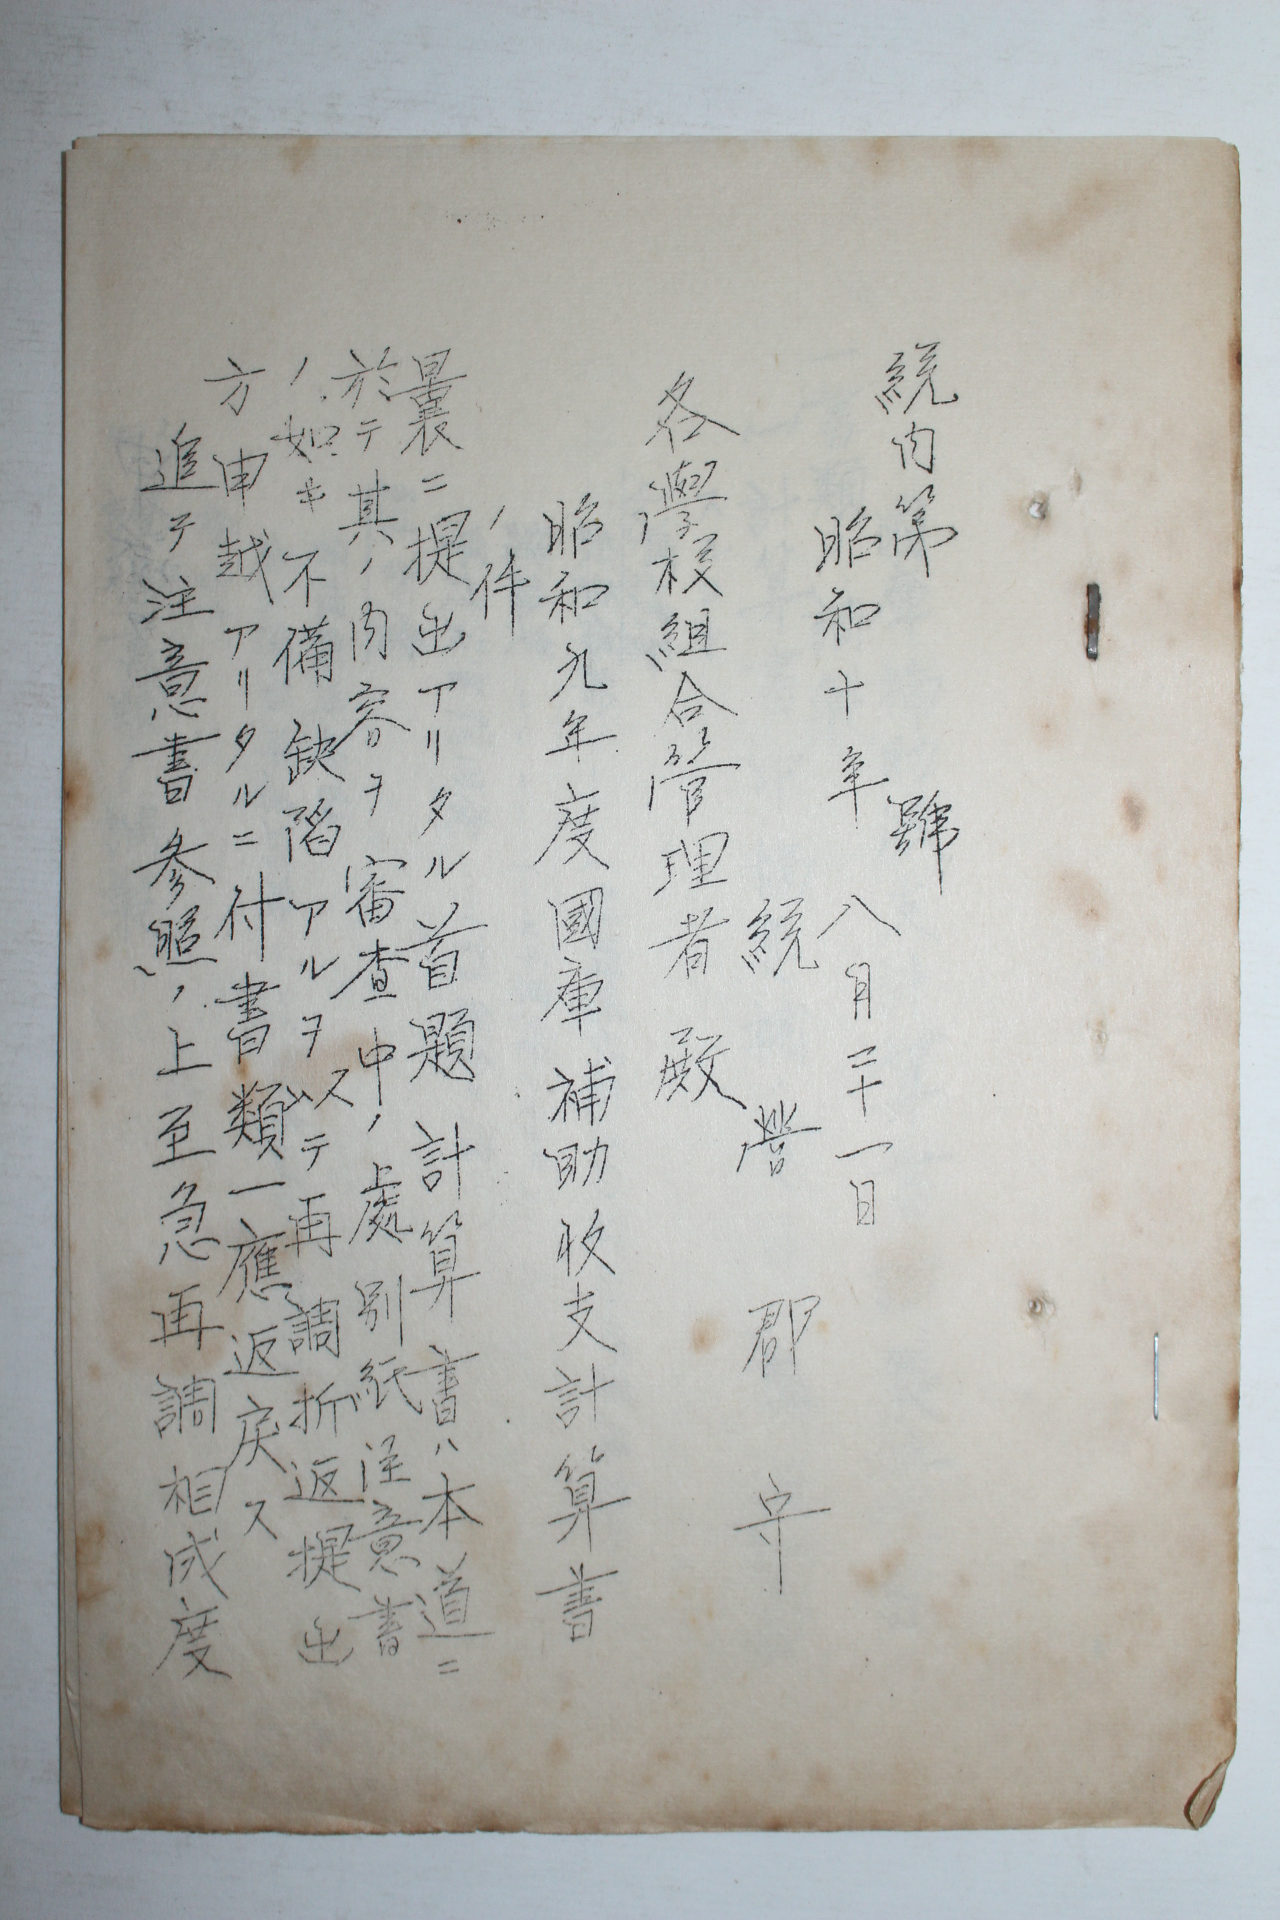 統内第　　號
昭和十年八月二十一日
統營郡守
各學校組合管理者殿
昭和九年度國庫補助收支計算書
ノ件
曩ニ提出アリタル首題計算書ハ本道ニ
於テ其ノ內容ヲ審査中ノ處別紙注意書
ノ如キ不備缺陷アルヲ以テ再調折返提出
方申越アリタルニ付書類一應返戾ス
追テ注意書參照ノ上至急再調相成度